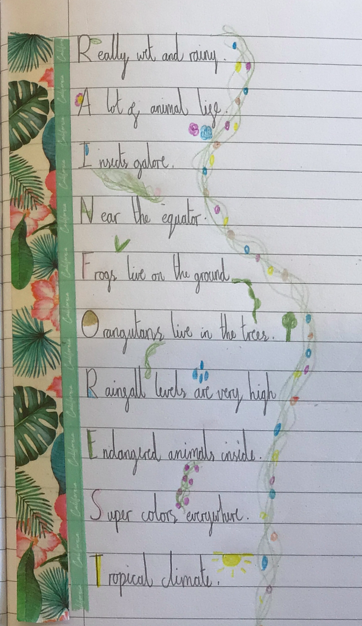 Really wet and rainy.
A lot of animal life.
Insects galore.
Near the equator.
Frogs live on the ground
Orangutans live in the trees.
Rainfall levels are very high
Endangered animals inside.
Super colors everywhere.
Tropical climate.